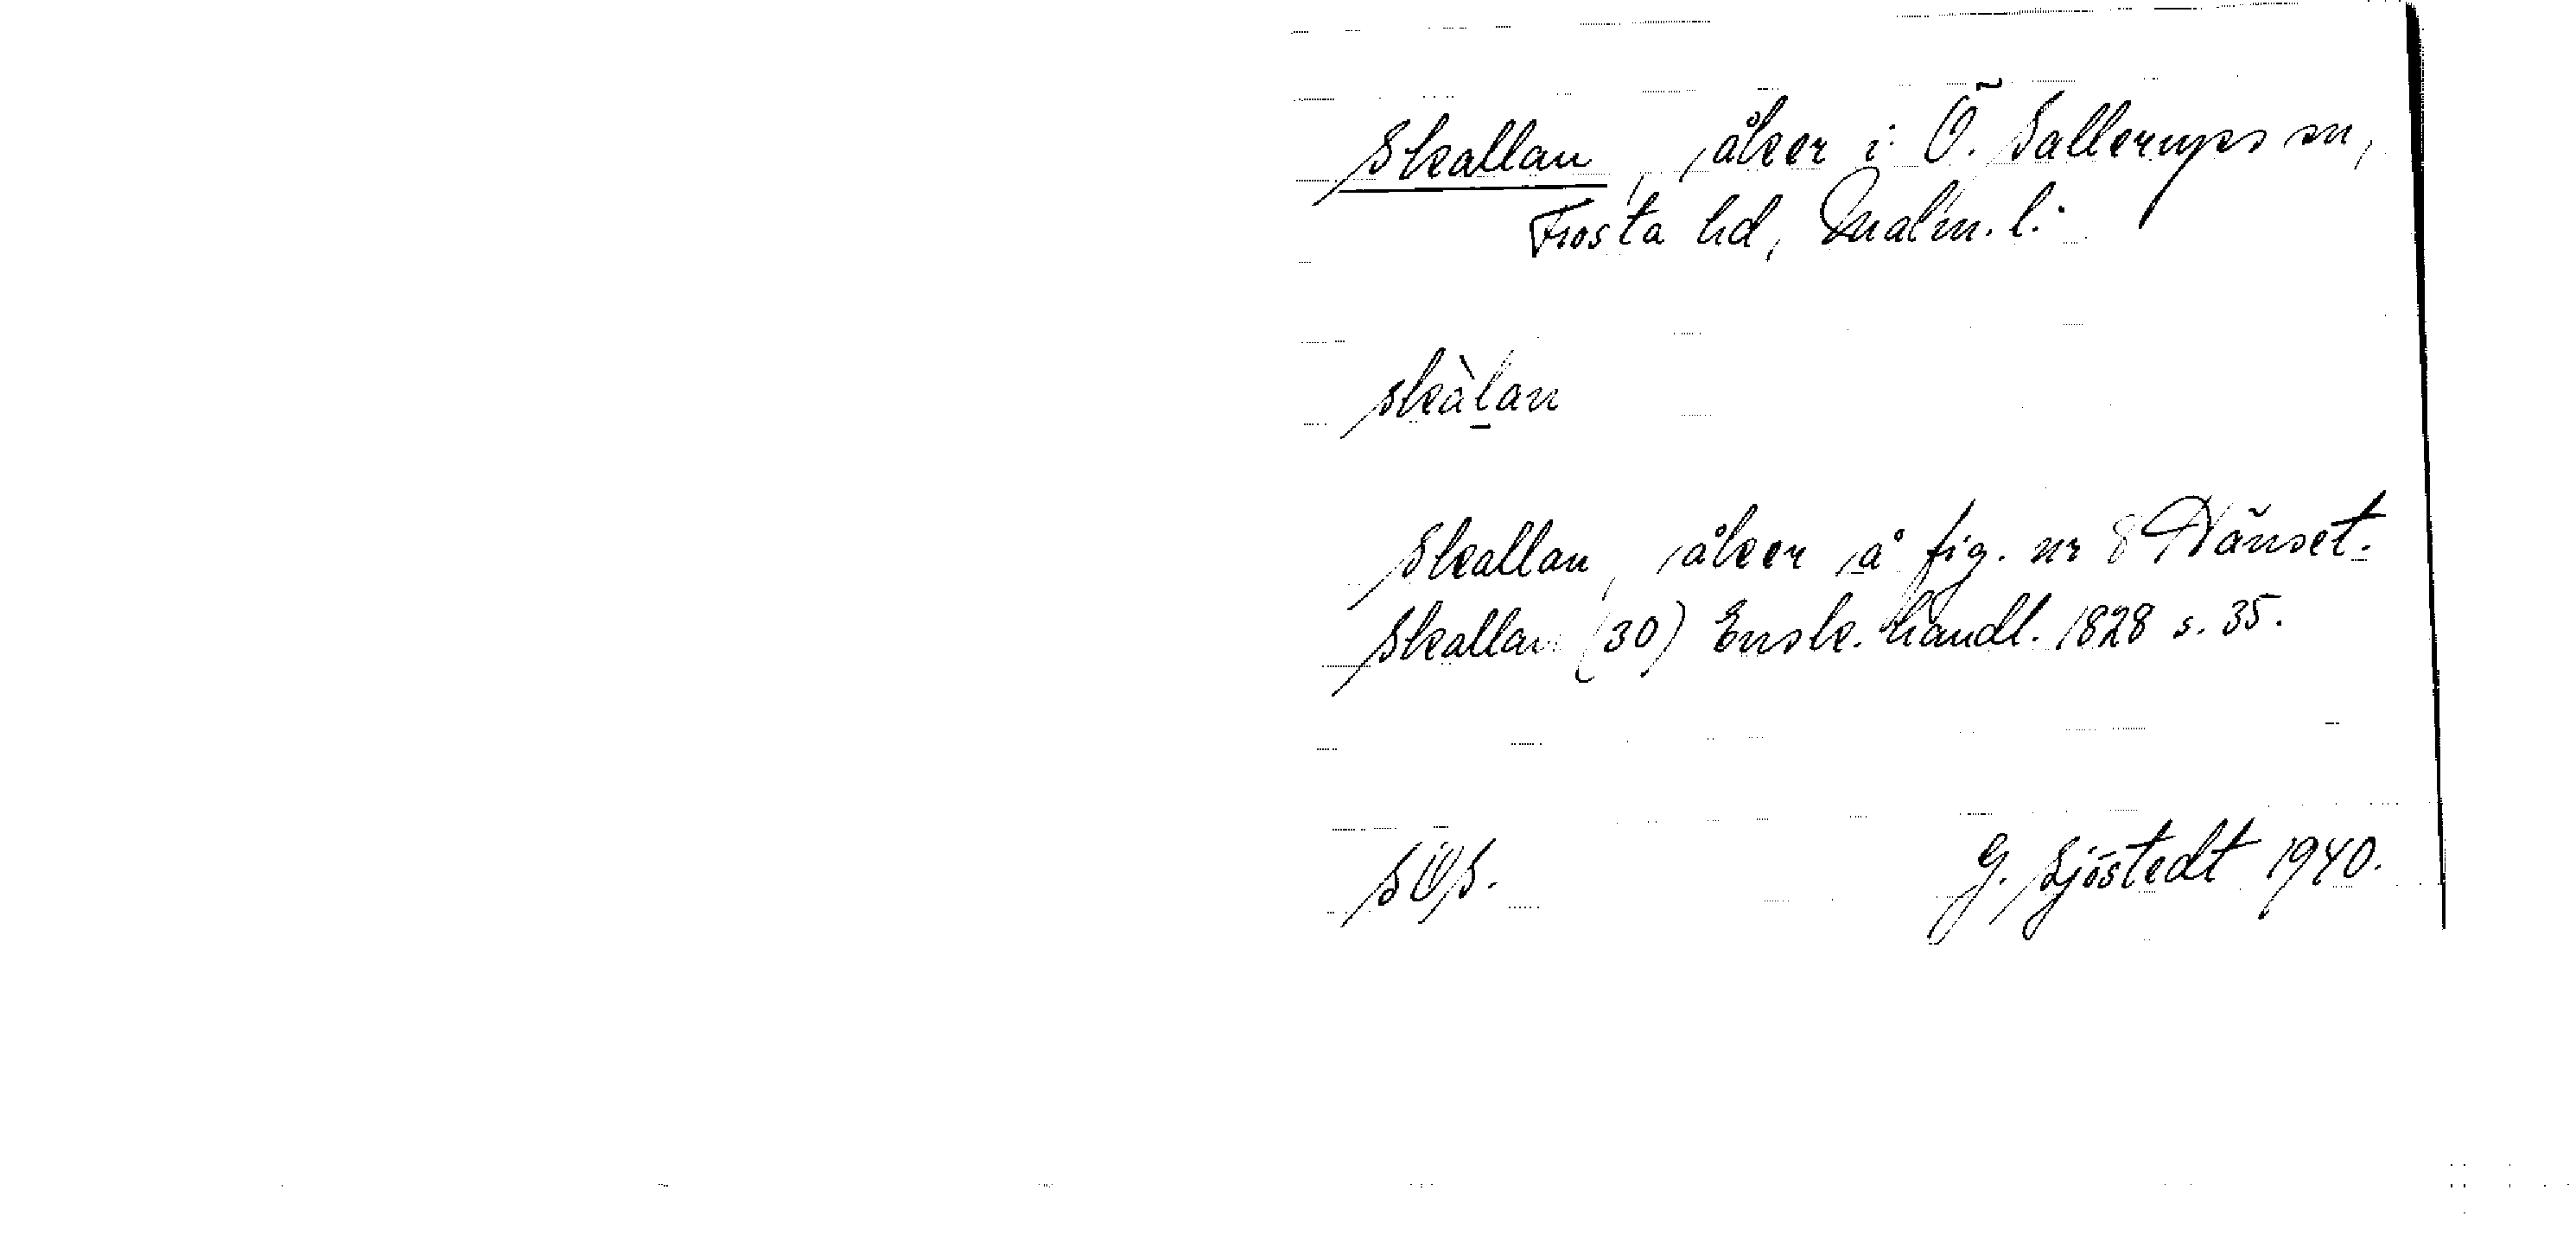 Skallan, åker i Ö. Sallerups sn,
Frosta hd, Malm. l.
skàlan
Skallan, åker å fig. nr 8 Hänset.
Skallan (30) Ensk. handl. 1828 s. 35.
SOS.
G. Sjöstedt 1940.